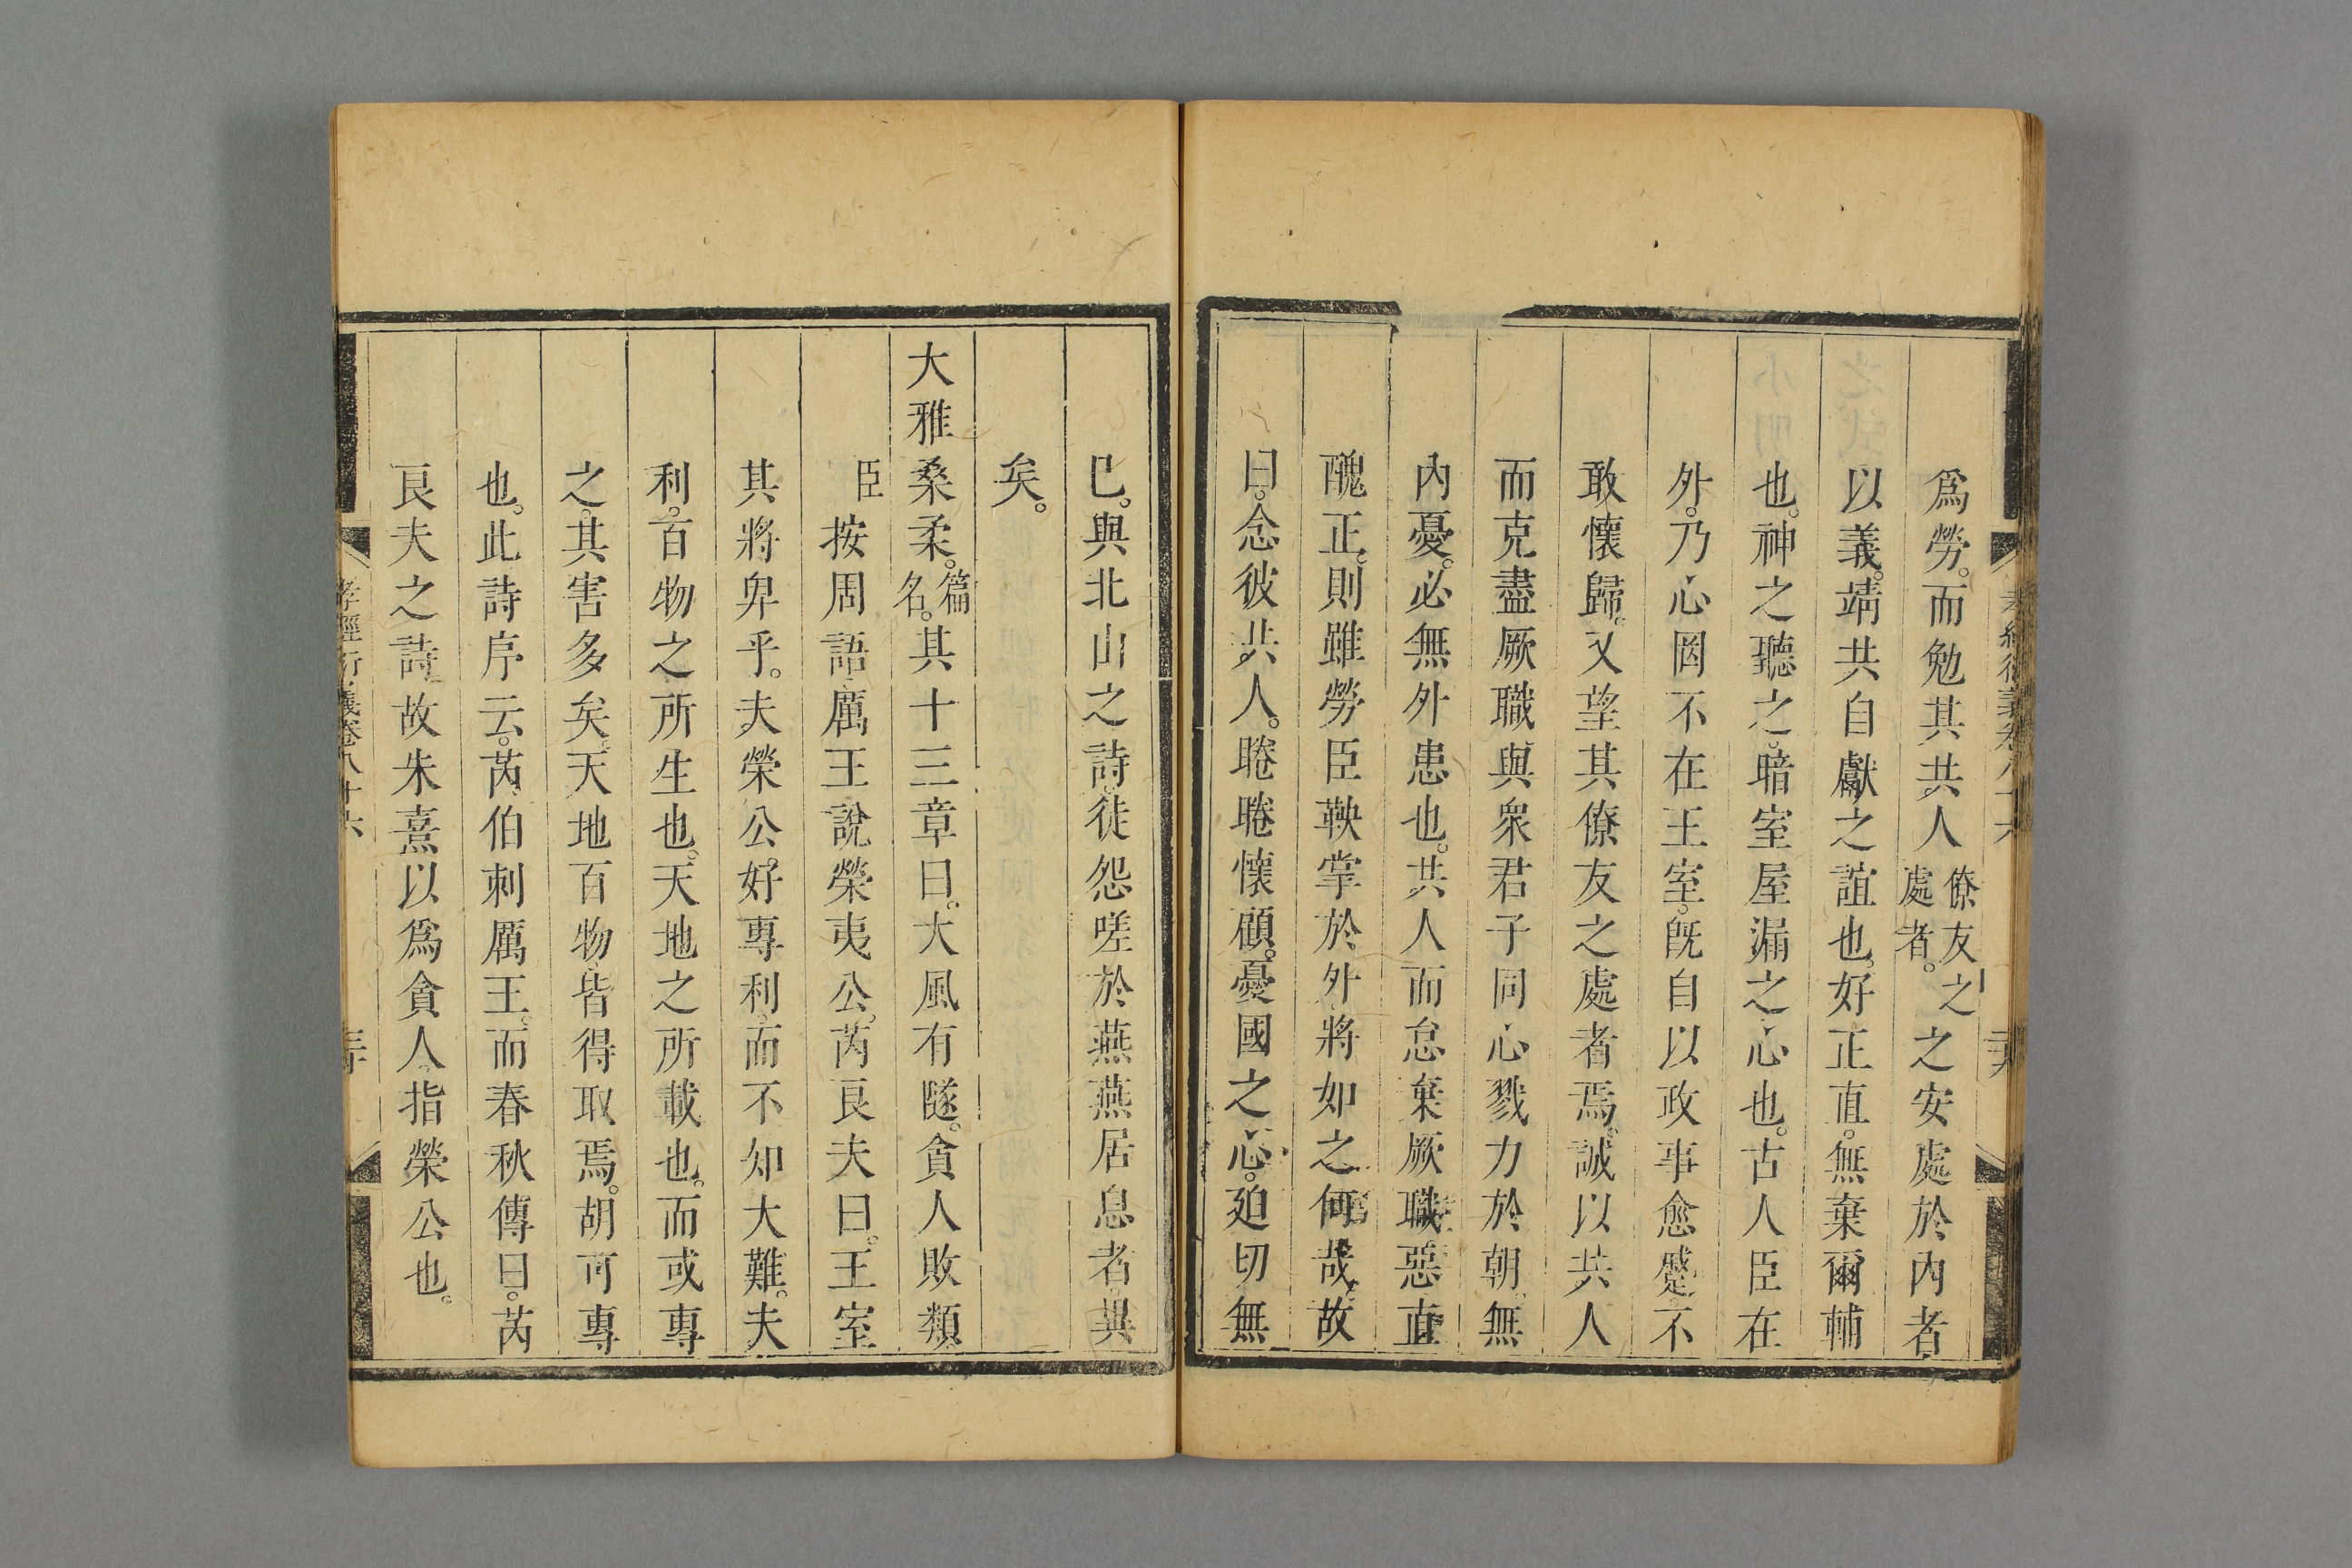 爲勞。而勉其共人僚友之處者。之安處於內者
以義。靖共自獻之誼也。好正直。無棄爾輔
也。神之聽之。暗室屋漏之心也。古人臣在
外。乃心罔不在王室。旣自以政事愈蹙。不
敢懷歸。又望其僚友之處者焉。誠以共人
而克盡厥職。與衆君子同心戮力於朝。無
內憂。必無外患也。共人而怠棄厥職。惡直
醜正。則雖勞臣鞅掌於外。將如之何哉。故
曰。念彼共人。睠睠懷顧。憂國之心。廹切無
已。與北山之詩。徒怨嗟於燕燕居息者。異
矣。
大雅桑柔。篇名。其十三章曰。大風有隧。貪人敗類
臣按周語。厲王說榮夷公。芮良夫曰。王室
其將卑乎。夫榮公。好專利。而不知大難。夫
利。百物之所生也。天地之所載也。而或專
之。其害多矣。天地百物。皆得取焉。胡可專
也。此詩序云。芮伯刺厲王。而春秋傳曰。芮
良夫之詩。故朱熹以爲貪人。指榮公也。
孝經衍義卷八十六
三十